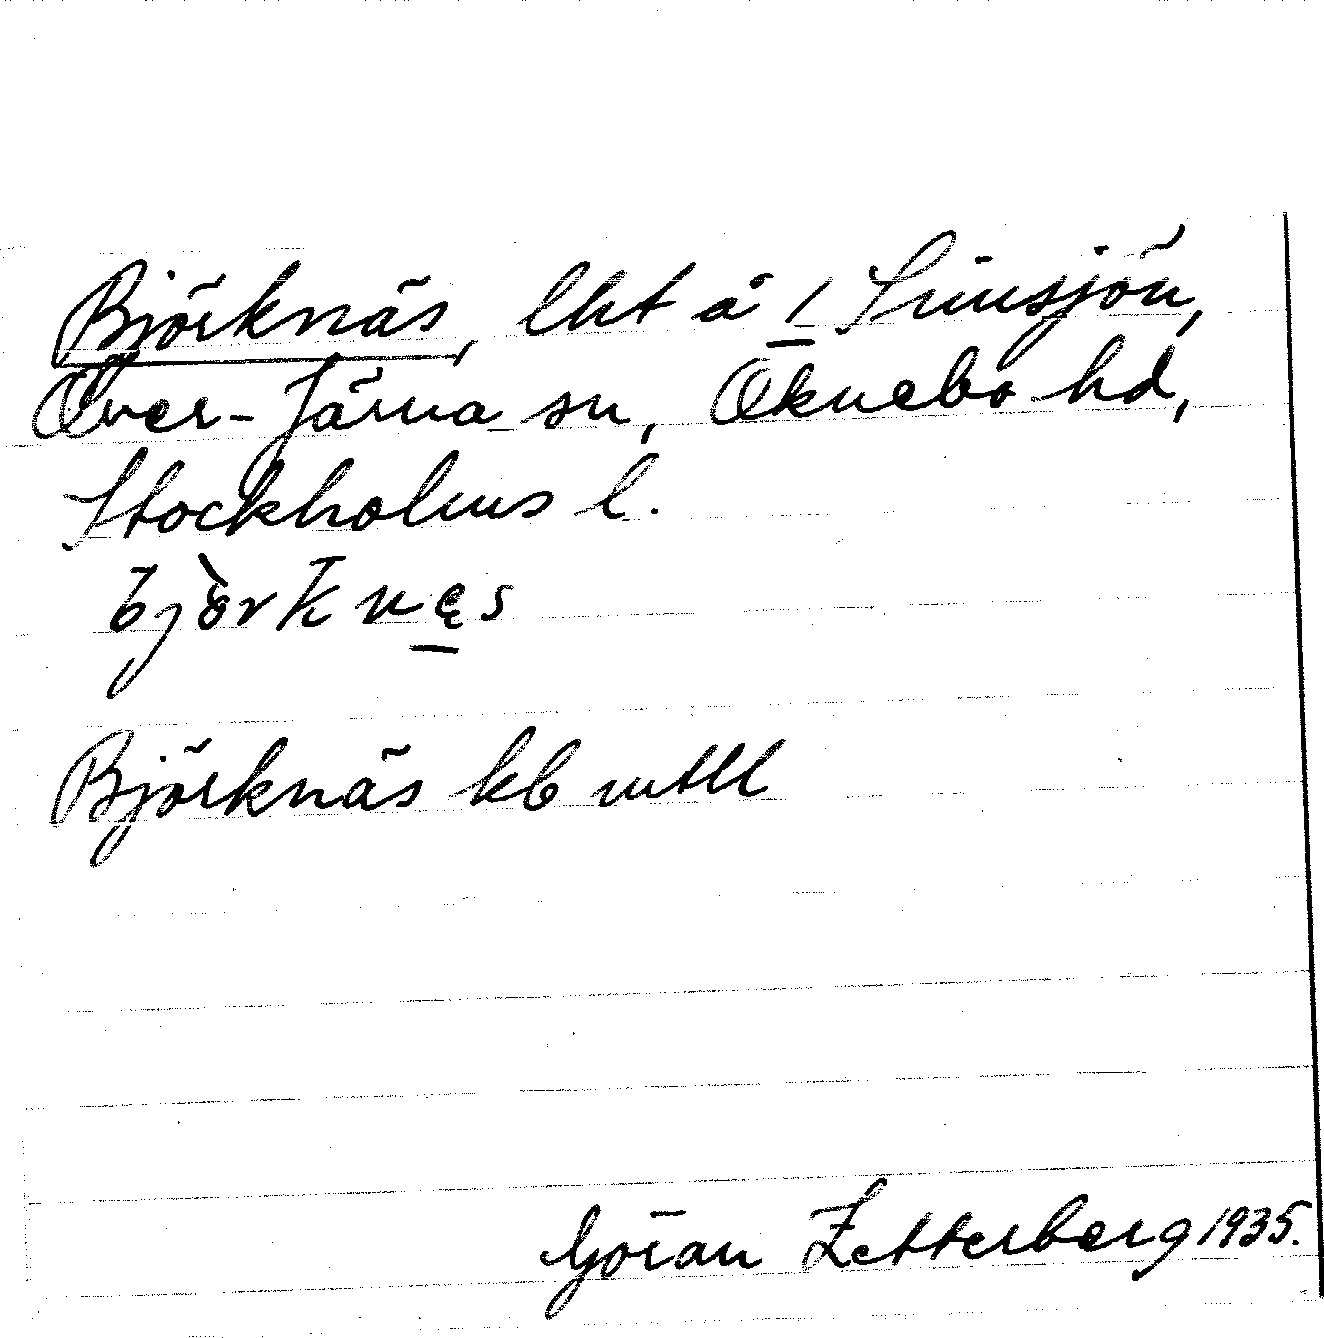 Björknäs, lht å 1 Simsjön,
Över-Järna sn, Öknebo hd,
Stockholms l.
bjòrknęs
Björknäs kb mtll
Göran Zetterberg 1935.